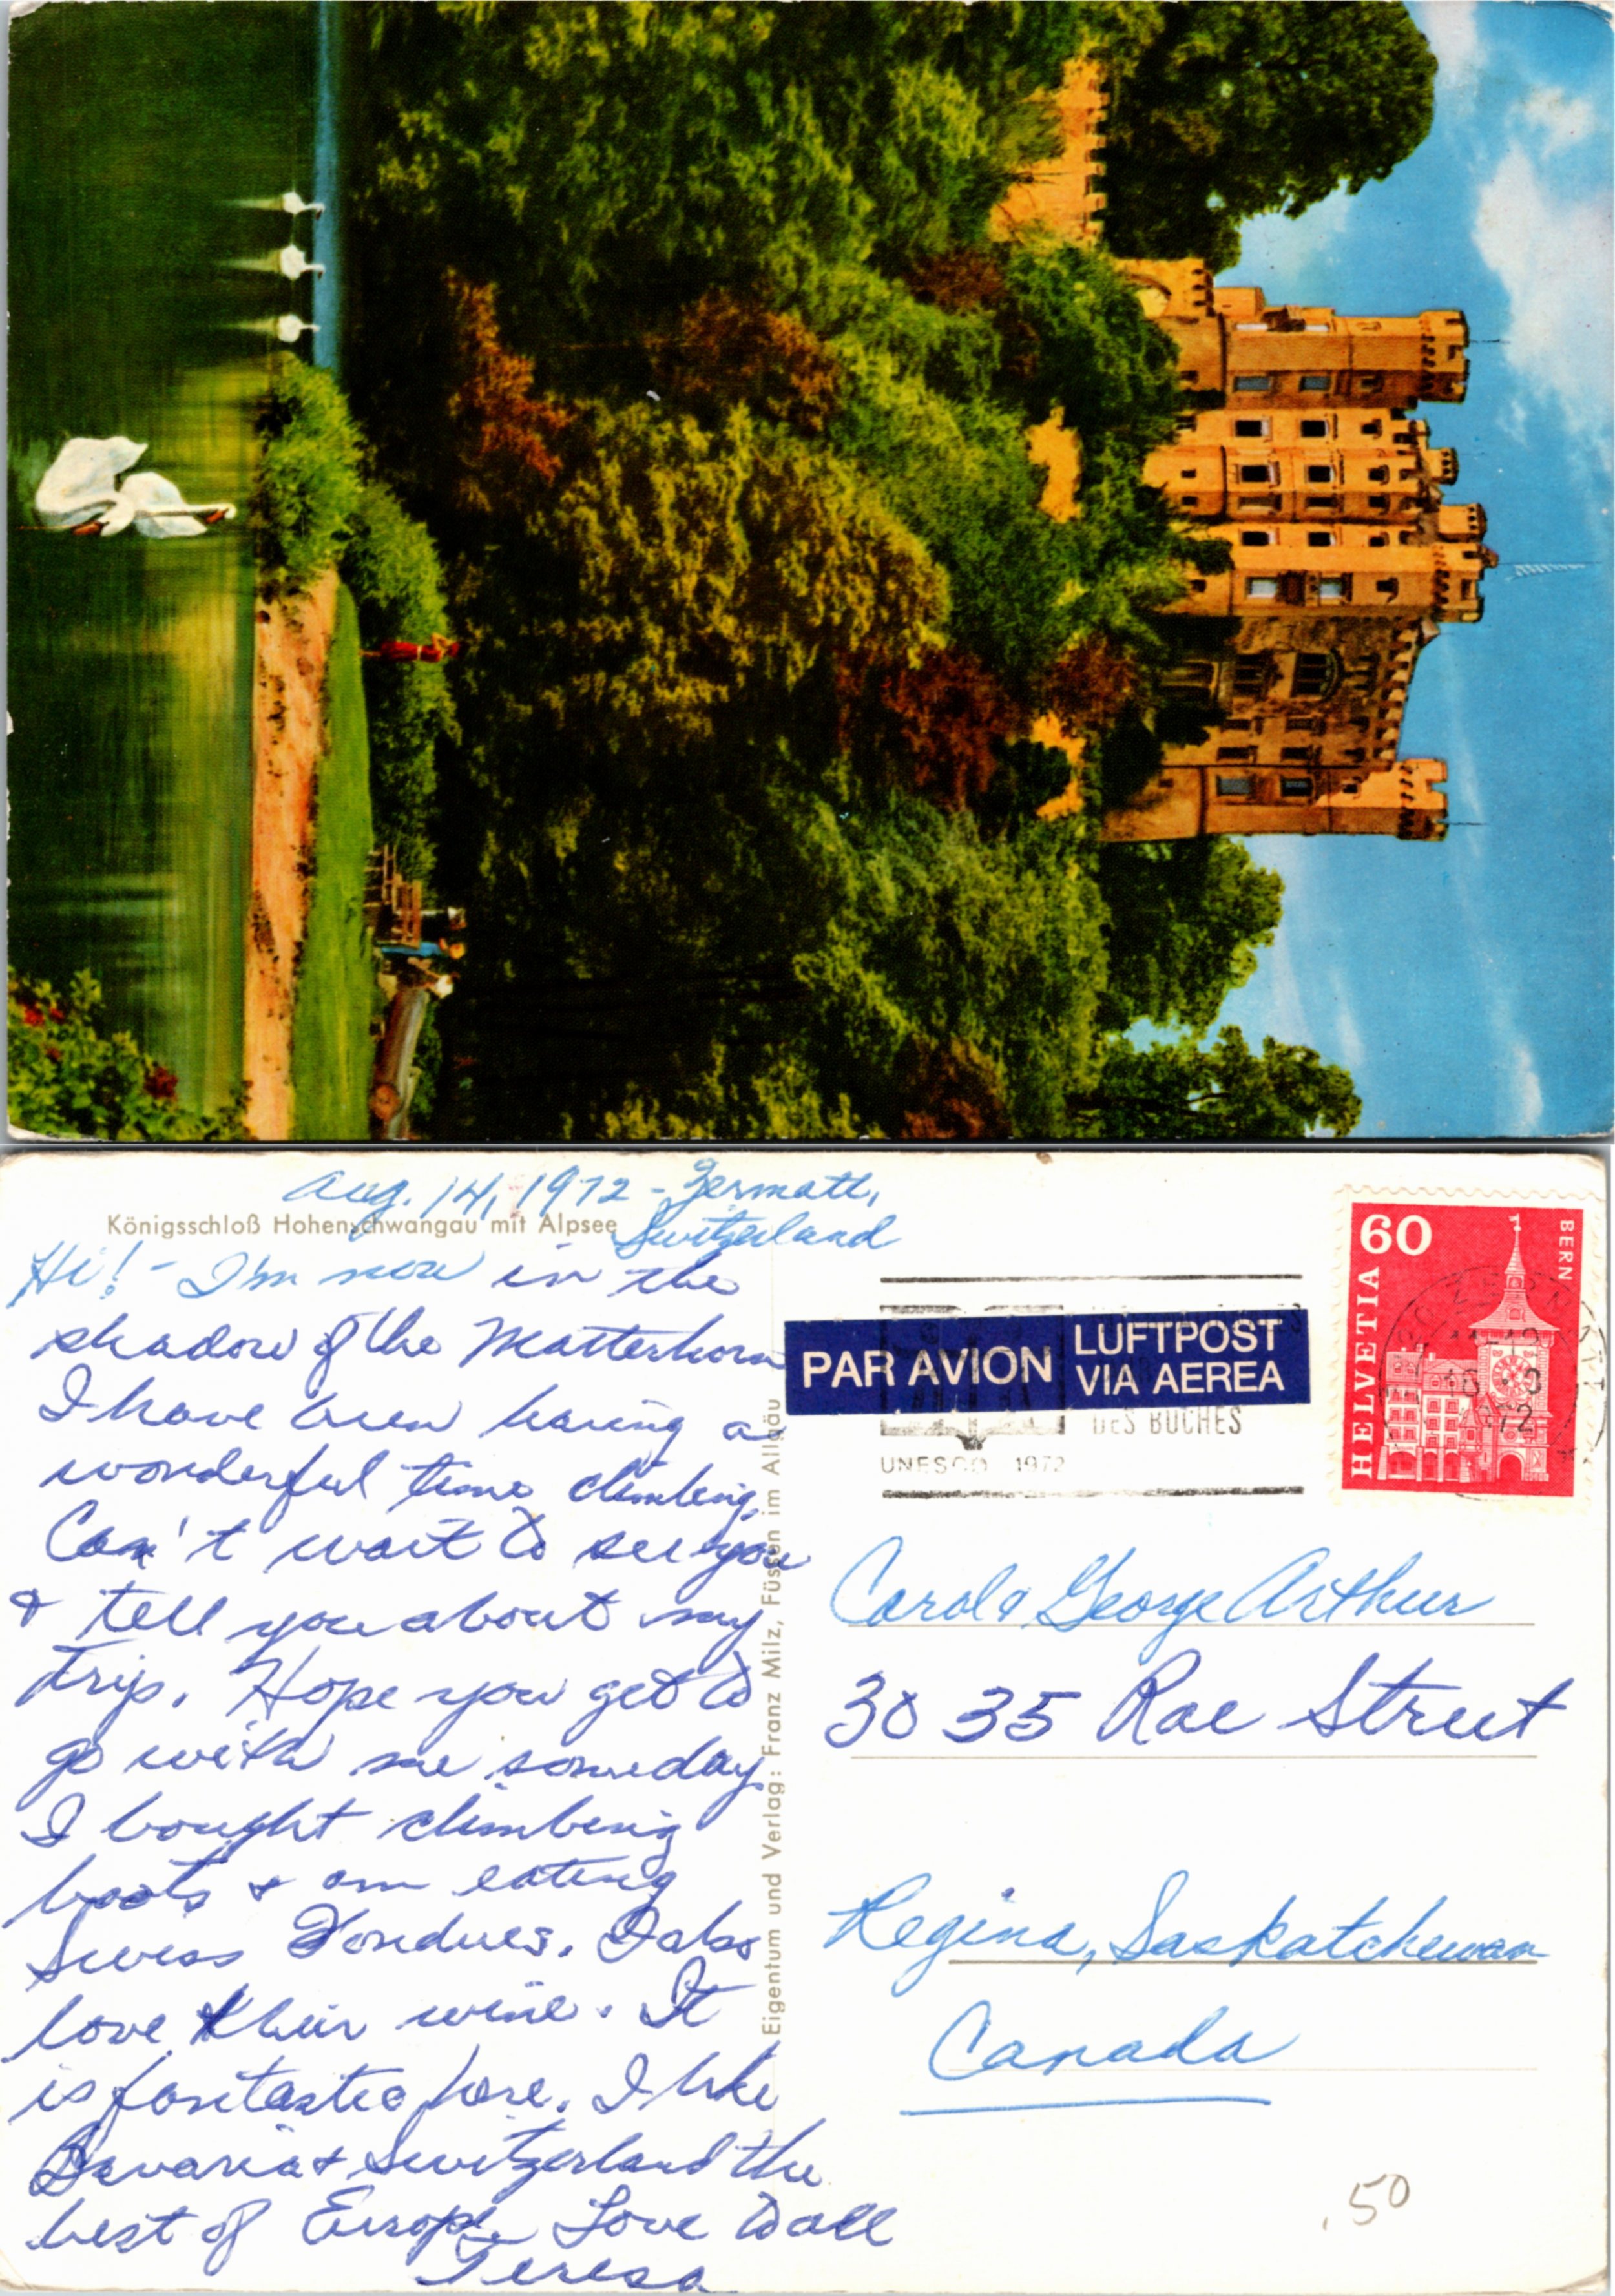 Aug. 14, 1972 - Zermatt,
Switzerland
Königsschloß Hohenschwangau mit Alpsee
Hi! - I'm now in the
shadow of the Matterhorn
I have been having a
wonderful time climbing.
Can't wait to see you
& tell you about my
trip. Hope you get to
go with me someday.
I bought climbing
boots & am eating
Swiss Fondues. I also
love their wine. It
is fantastic here. I like
Bavaria & Switzerland the
best of Europe. Love to all
Teresa
Eigentum und Verlag: Franz Milz, Füssen im Allgäu
PAR AVION
LUFTPOST
VIA AEREA
DES BUCHES
UNESCO 1972
60
BERN
HELVETIA
ZERMATT
72
Carol & George Arthur
3035 Rae Street
Regina, Saskatchewan
Canada
.50